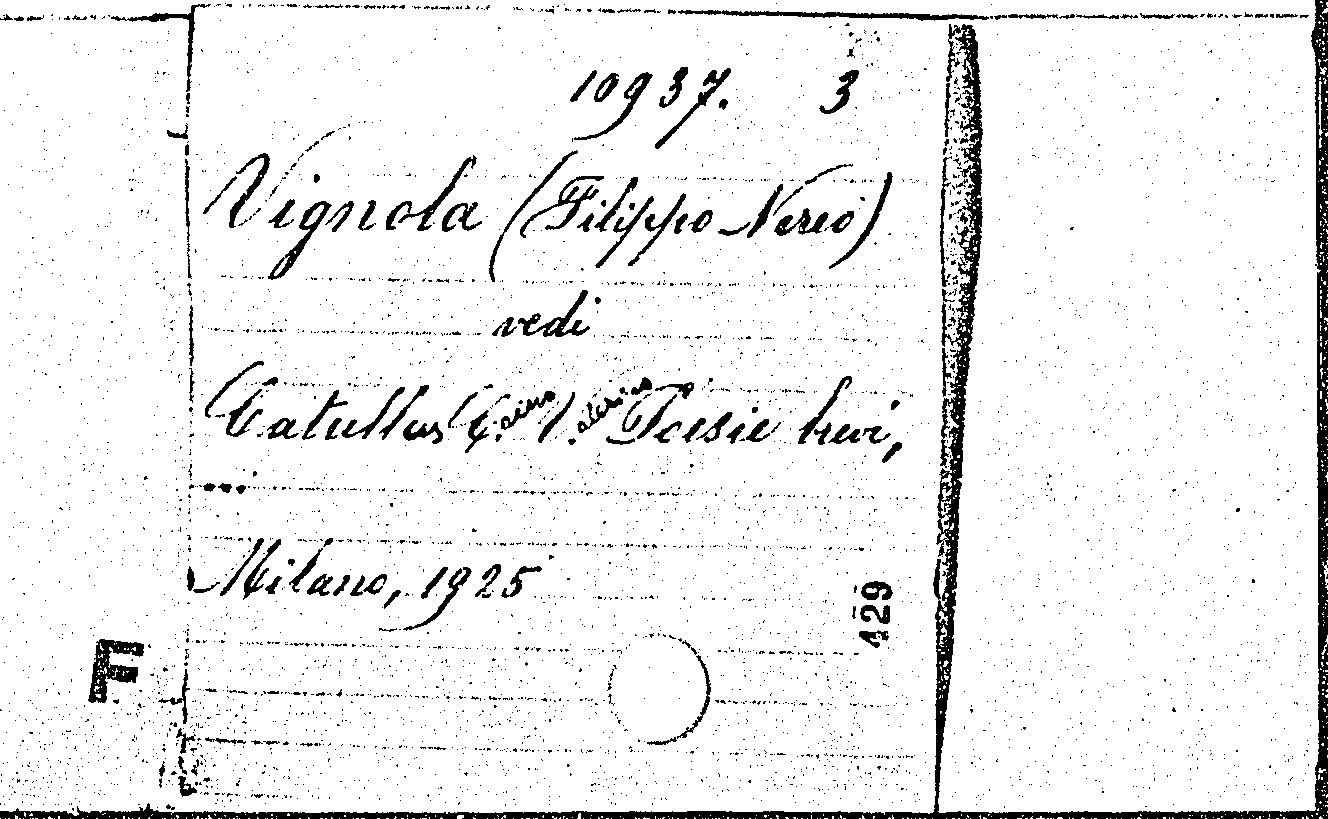 10937. 3
Vignola (Filippo Nereo)
vedi
Catullus G.aius V.alerius Poesie brevi,
...
Milano, 1925
429
F